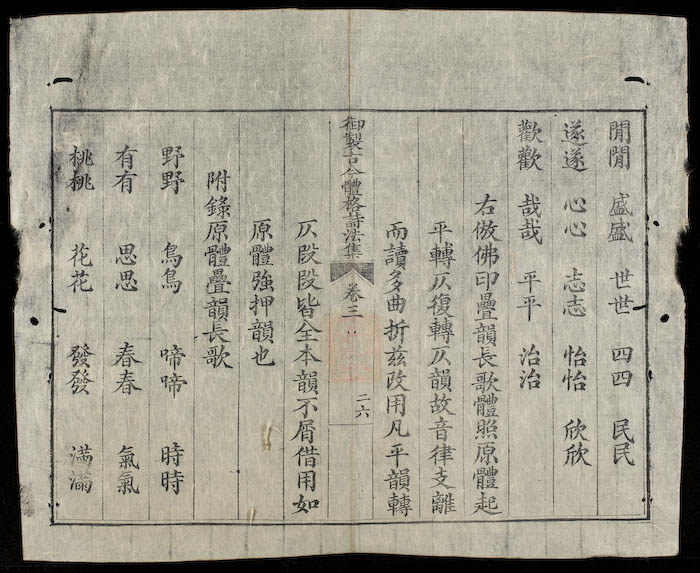 閒閒 盛盛 世世 四四 民民
遂遂 心心 志志 怡怡 欣欣
歡歡 哉哉 平平 治治
右倣佛印疊韻長歌體照原體起
平轉仄復轉仄韻故音律支離
而讀多曲折兹改用凡平韻轉
御製古今體格詩法集 卷三 二六
仄段段皆全本韻不屑借用如
原體強押韻也
附錄原體疊韻長歌
野野 鳥鳥 啼啼 時時
有有 思思 春春 氣氣
桃桃 花花 發發 滿滿